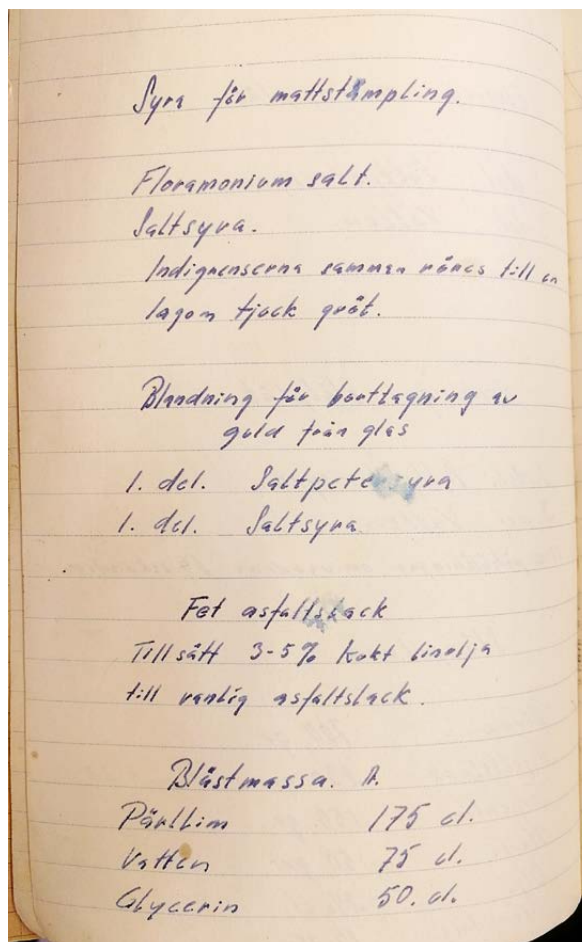 Syra för mattstämpling.
Floramonium salt.
Saltsyra.
Indigrenserna samman röres till en
lagom tjock gröt.
Blandning för borttagning av
guld från glas
1. del. Saltpetersyra
1. del. Saltsyra.
Fet asfaltslack
Tillsätt 3-5% kokt linolja
till vanlig asfaltslack.
Blästmassa. A.
Pärllim 175 d.
Vatten 75 d.
Glycerin 50. d.